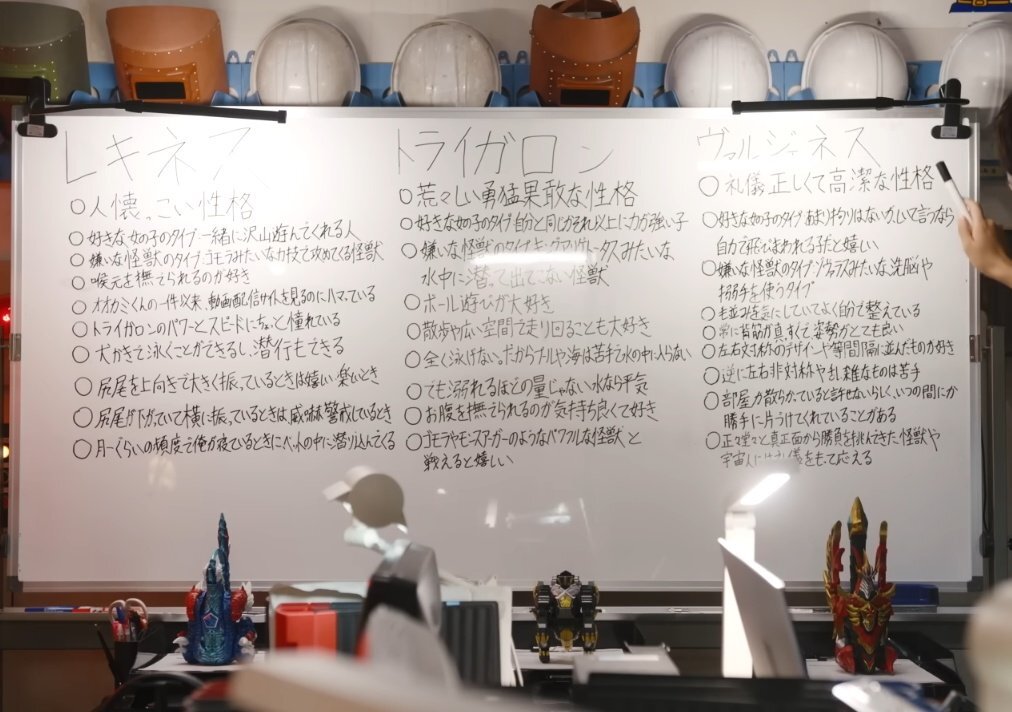 レキネス
○人懐っこい性格
○好きな女の子のタイプ:一緒に沢山遊んでくれる人
○嫌いな怪獣のタイプ:ゴモラみたいな力技で攻めてくる怪獣
○喉元を撫でられるのが好き
○オオカミくんの一件以来、動画配信サイトを見るのにハマっている
○トライガロンのパワーとスピードにちょっと憧れている
○犬かきで泳ぐことができるし、潜行もできる
○尻尾を上向きで大きく振っているときは嬉しい・楽しいとき
○尻尾が下がっていて横に振っているときは威嚇・警戒しているとき
○月一ぐらいの頻度で俺が寝ているときに の中に潜り込んでくる
トライガロン
○荒々しい勇猛果敢な性格
○好きな女の子のタイプ:自分と同じかそれ以上に力が強い子
○嫌いな怪獣のタイプ:キングゲスラ みたいな
水中に潜って出てこない怪獣
○ボール遊びが大好き
○散歩や広い空間で走り回ることも大好き
○全く泳げない。だからプールや海は苦手で水の中に入らない
○でも溺れるほどの量じゃない水なら平気
○お腹を撫でられるのが気持ち良くて好き
○ゴモラやモンスアーガーのようなパワフルな怪獣と
戦えると嬉しい
ヴァルジェネス
○礼儀正しくて高潔な性格
○好きな女の子のタイプ:あまり拘りはないが、しいて言うなら
自力で飛びまわれる子だと嬉しい
○嫌いな怪獣のタイプ: みたいな洗脳や
搦手を使うタイプ
○毛並みを気にしていてよく自分で整えている
○常に背筋が真っすぐで姿勢がとても良い
○左右対称のデザインや等間隔に並んだものが好き
○逆に左右非対称や乱雑なものは苦手
○部屋が散らかっていると許せないらしく、いつの間にか
勝手に片づけてくれていることがある
○正々堂々と真正面から勝負を挑んできた怪獣や
宇宙人には礼儀をもって応える